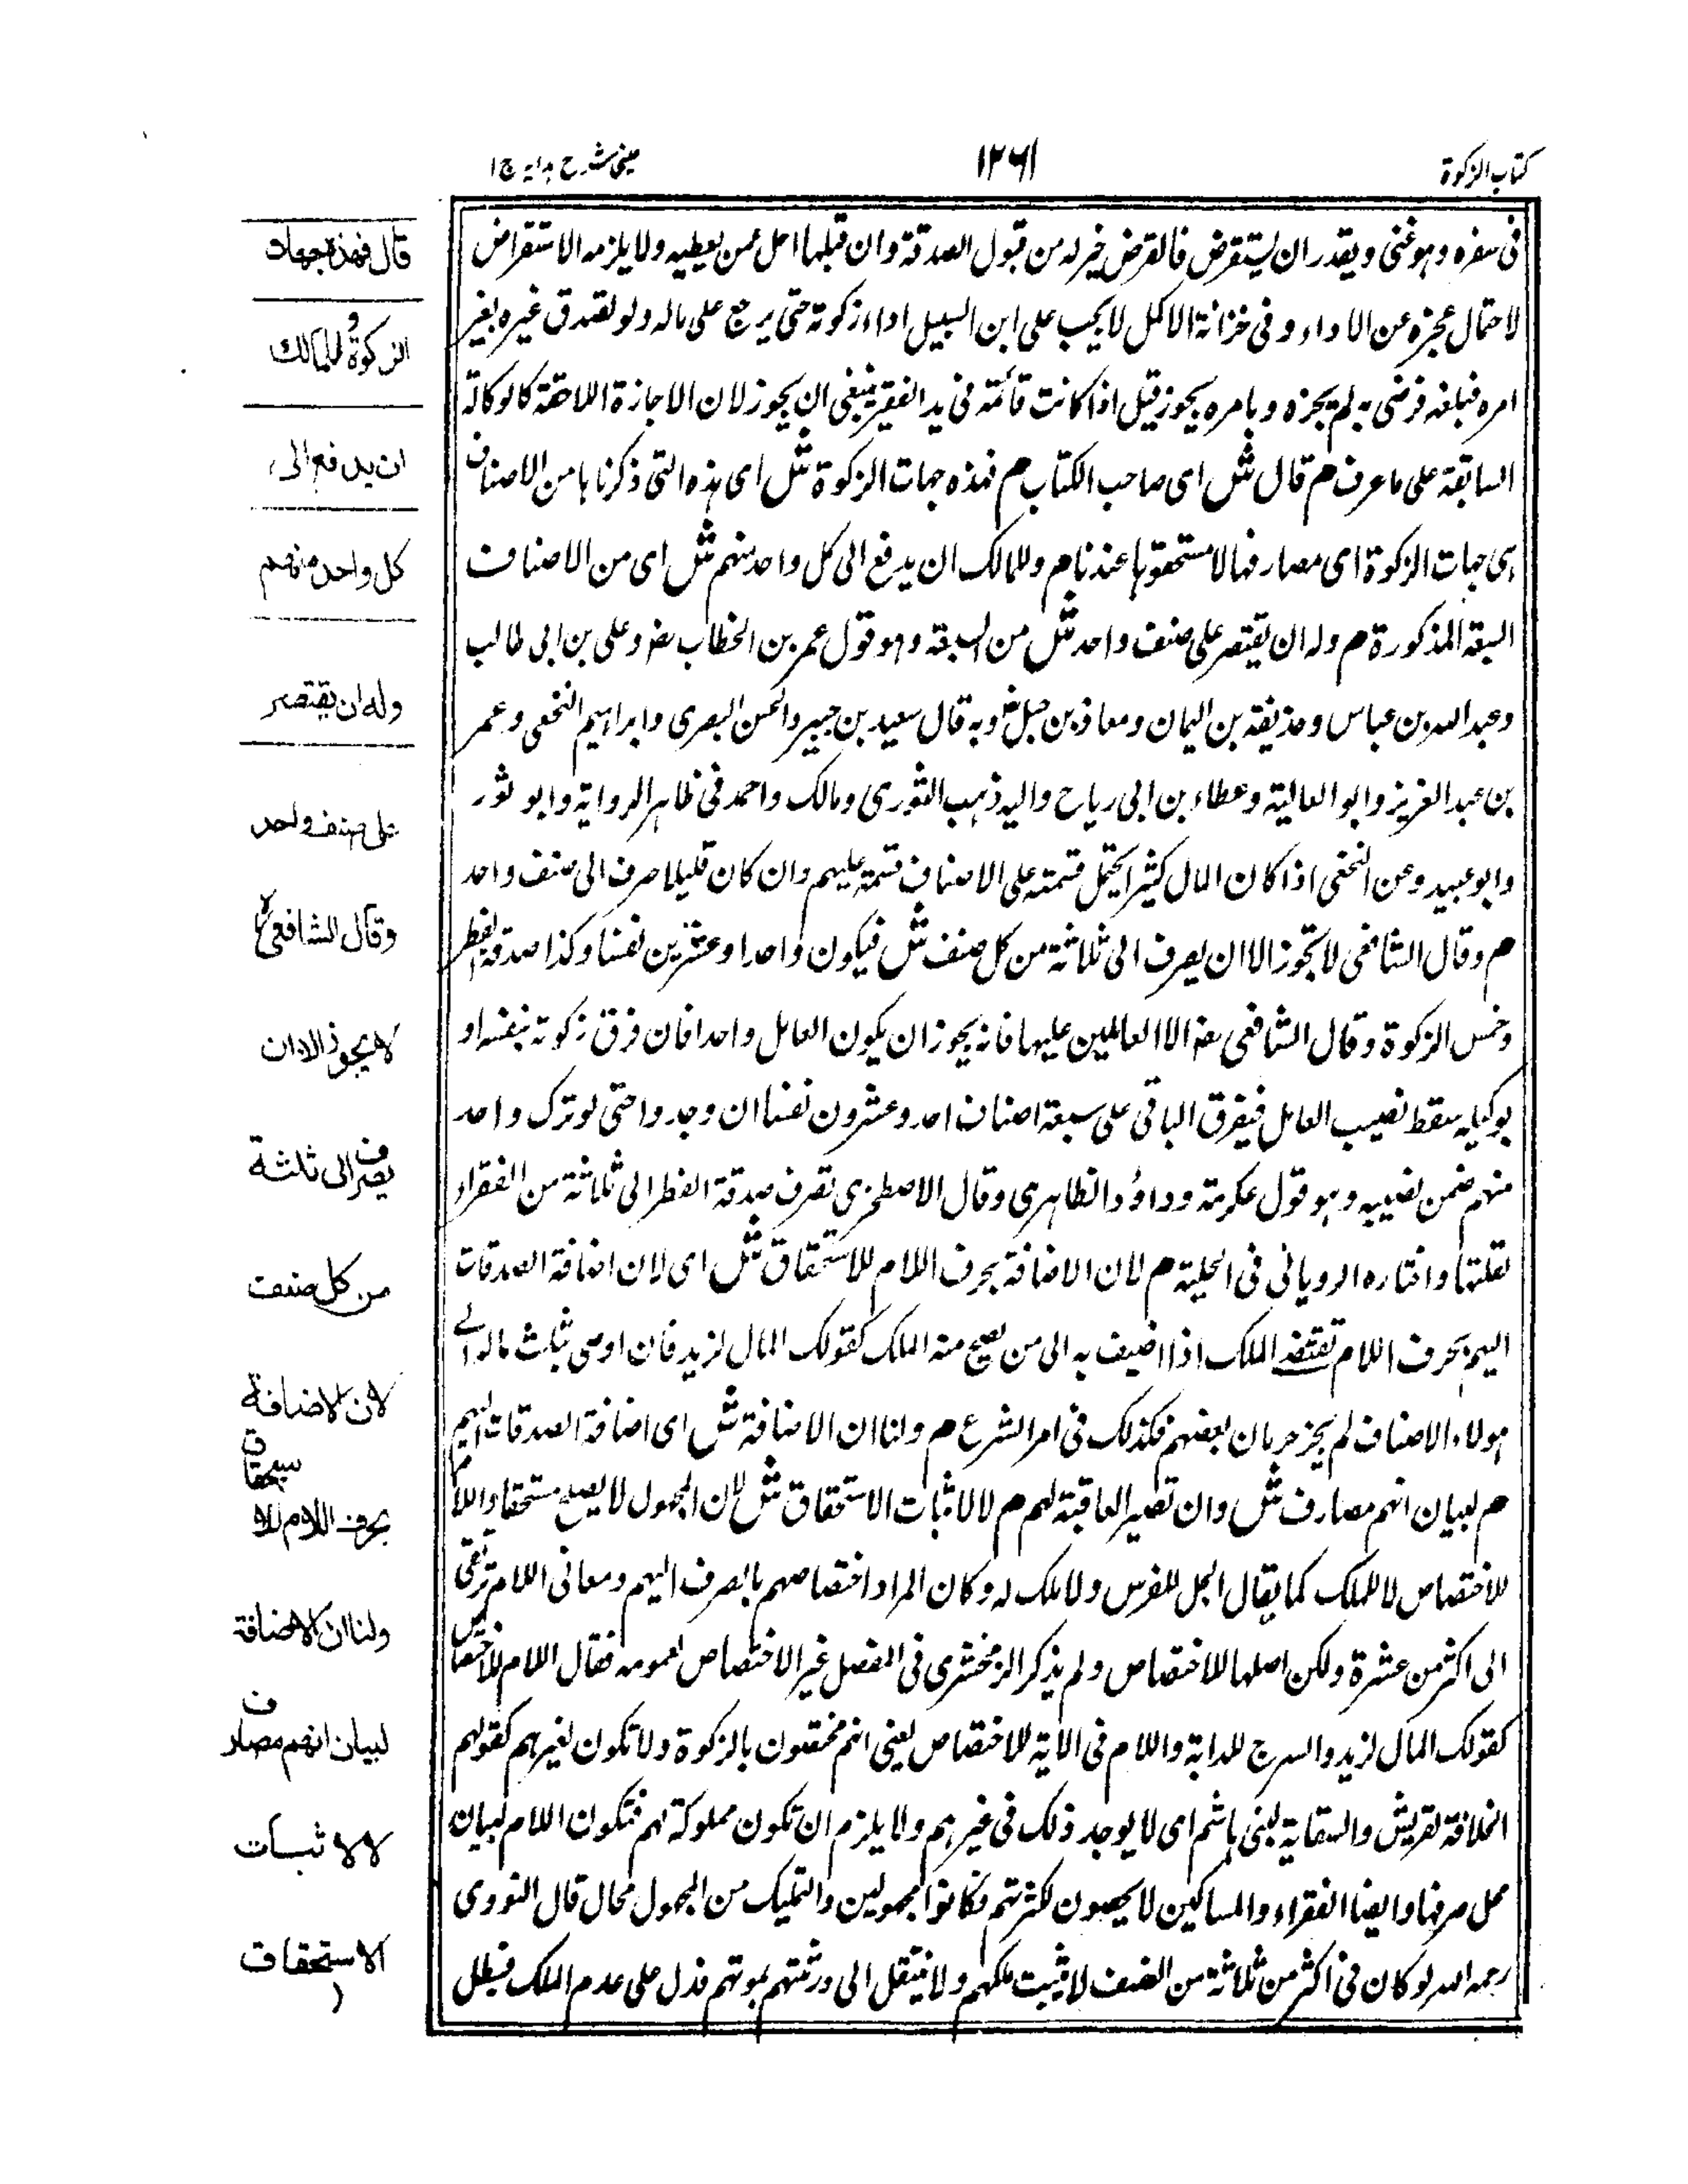 كتاب الزكوة
١٢٦١
عينى شرح هدايه ج ١
فى سفره وهو غنى ويقدر ان يستقرض فالقرض خير له من قبول الصدقة وان قبلها احل عمن يعطيه ولا يلزمه الاستقراض
لاحتمال عجزه عن الاداء وفى خزانة الاكمل لا يجب على ابن السبيل اداء زكوته حتى يرجع على ماله ولو تصدق غيره بغير
امره فبلغه فرضى به لم يجزه وبامره يجوز قيل اذا كانت قائمة فى يد الفقير ينبغى ان يجوز لان الاجازة اللاحقة كالوكالة
السابقة على ما عرف م قال ش اى صاحب الكتاب م فهذه جهات الزكوة ش اى هذه التى ذكرناها من الاصناف
هى جهات الزكوة اى مصارفها لا مستحقوها عندنا م وللمالك ان يدفع الى كل واحد منهم ش اى من الاصناف
السبعة المذكورة م وله ان يقتصر على صنف واحد ش من السبعة وهو قول عمر بن الخطاب رضه وعلى بن ابى طالب
وعبد الله بن عباس وحذيفة بن اليمان ومعاذ بن جبل رض وبه قال سعيد بن جبير والحسن البصرى وابراهيم النخعى وعمر
بن عبد العزيز وابو العالية وعطاء بن ابى رباح واليه ذهب الثورى ومالك واحمد فى ظاهر الرواية وابو ثور
وابو عبيد وعن النخعى اذا كان المال كثيرا يحتمل قسمته على الاصناف قسمه عليهم وان كان قليلا صرف الى صنف واحد
م وقال الشافعى لا يجوز الا ان يصرف الى ثلاثة من كل صنف ش فيكون واحدا وعشرين نفسا وكذا صدقة الفطر
وخمس الزكوة وقال الشافعى رضه الا العاملين عليها فانه يجوز ان يكون العامل واحدا فان فرق زكوته بنفسه او
بوكيله سقط نصيب العامل فيفرق الباقى على سبعة اصناف احد وعشرون نفسا ان وجدوا حتى لو ترك واحد
منهم ضمن نصيبه وهو قول عكرمة وداؤد الظاهرى وقال الاصطخرى تصرف صدقة الفطر الى ثلاثة من الفقراء
لقلتها واختاره الرويانى فى الحلية م لان الاضافة بحرف اللام للاستحقاق ش اى لان اضافة الصدقات
اليهم بحرف اللام تقتضى الملك اذا اضيف به الى من يصح منه الملك كقولك المال لزيد فان اوصى بثلث ماله الى
هولاء الاصناف لم يجز حرمان بعضهم فكذلك فى امر الشرع م ولنا ان الاضافة ش اى اضافة الصدقات اليهم
م لبيان انهم مصارف ش وان تصير العاقبة لهم م لا لاثبات الاستحقاق ش لان المجهول لا يصلح مستحقا واللام
للاختصاص لا للملك كما يقال الجل للفرس ولا ملك له وكان المراد اختصاصهم بالصرف اليهم ومعانى اللام ترتقى
الى اكثر من عشرة ولكن اصلها للاختصاص ولم يذكر الزمخشرى فى المفصل غير الاختصاص لعمومه فقال اللام للاختصاص
كقولك المال لزيد والسرج للدابة واللام فى الآية للاختصاص يعنى انهم مختصون بالزكوة ولا تكون لغيرهم كقولهم
الخلافة لقريش والسقاية لبنى هاشم اى لا يوجد ذلك فى غيرهم ولا يلزم ان تكون مملوكة لهم فتكون اللام لبيان
محل صرفها وايضا الفقراء والمساكين لا يحصون لكثرتهم فكانوا مجهولين والتمليك من المجهول محال قال النووى
رحمه الله لو كان فى اكثر من ثلاثة من الصنف لا يثبت ملكهم ولا ينتقل الى ورثتهم بموتهم فدل على عدم الملك فبطل
قال فهذه جهات
الزكوة وللمالك
ان يدفع الى
كل واحد منهم
وله ان يقتصر
على صنف واحد
وقال الشافعى رح
لا يجوز الا ان
يصرف الى ثلثة
من كل صنف
لان الاضافة
بحرف اللام للاستحقاق
ولنا ان الاضافة
لبيان انهم مصارف
لا لاثبات
الاستحقاق